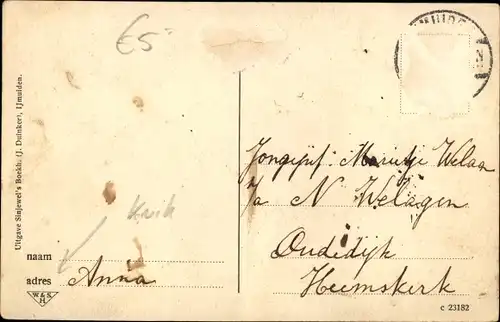 €5-
Uitgave Sinjewel's Boekh. (J. Duinker), IJmuiden.
Jongejuf. Marietje Welage
p/a N Welagen
Oudedijk
Heemskerk
Krik
naam
adres Anna
W&S
H
c 23182